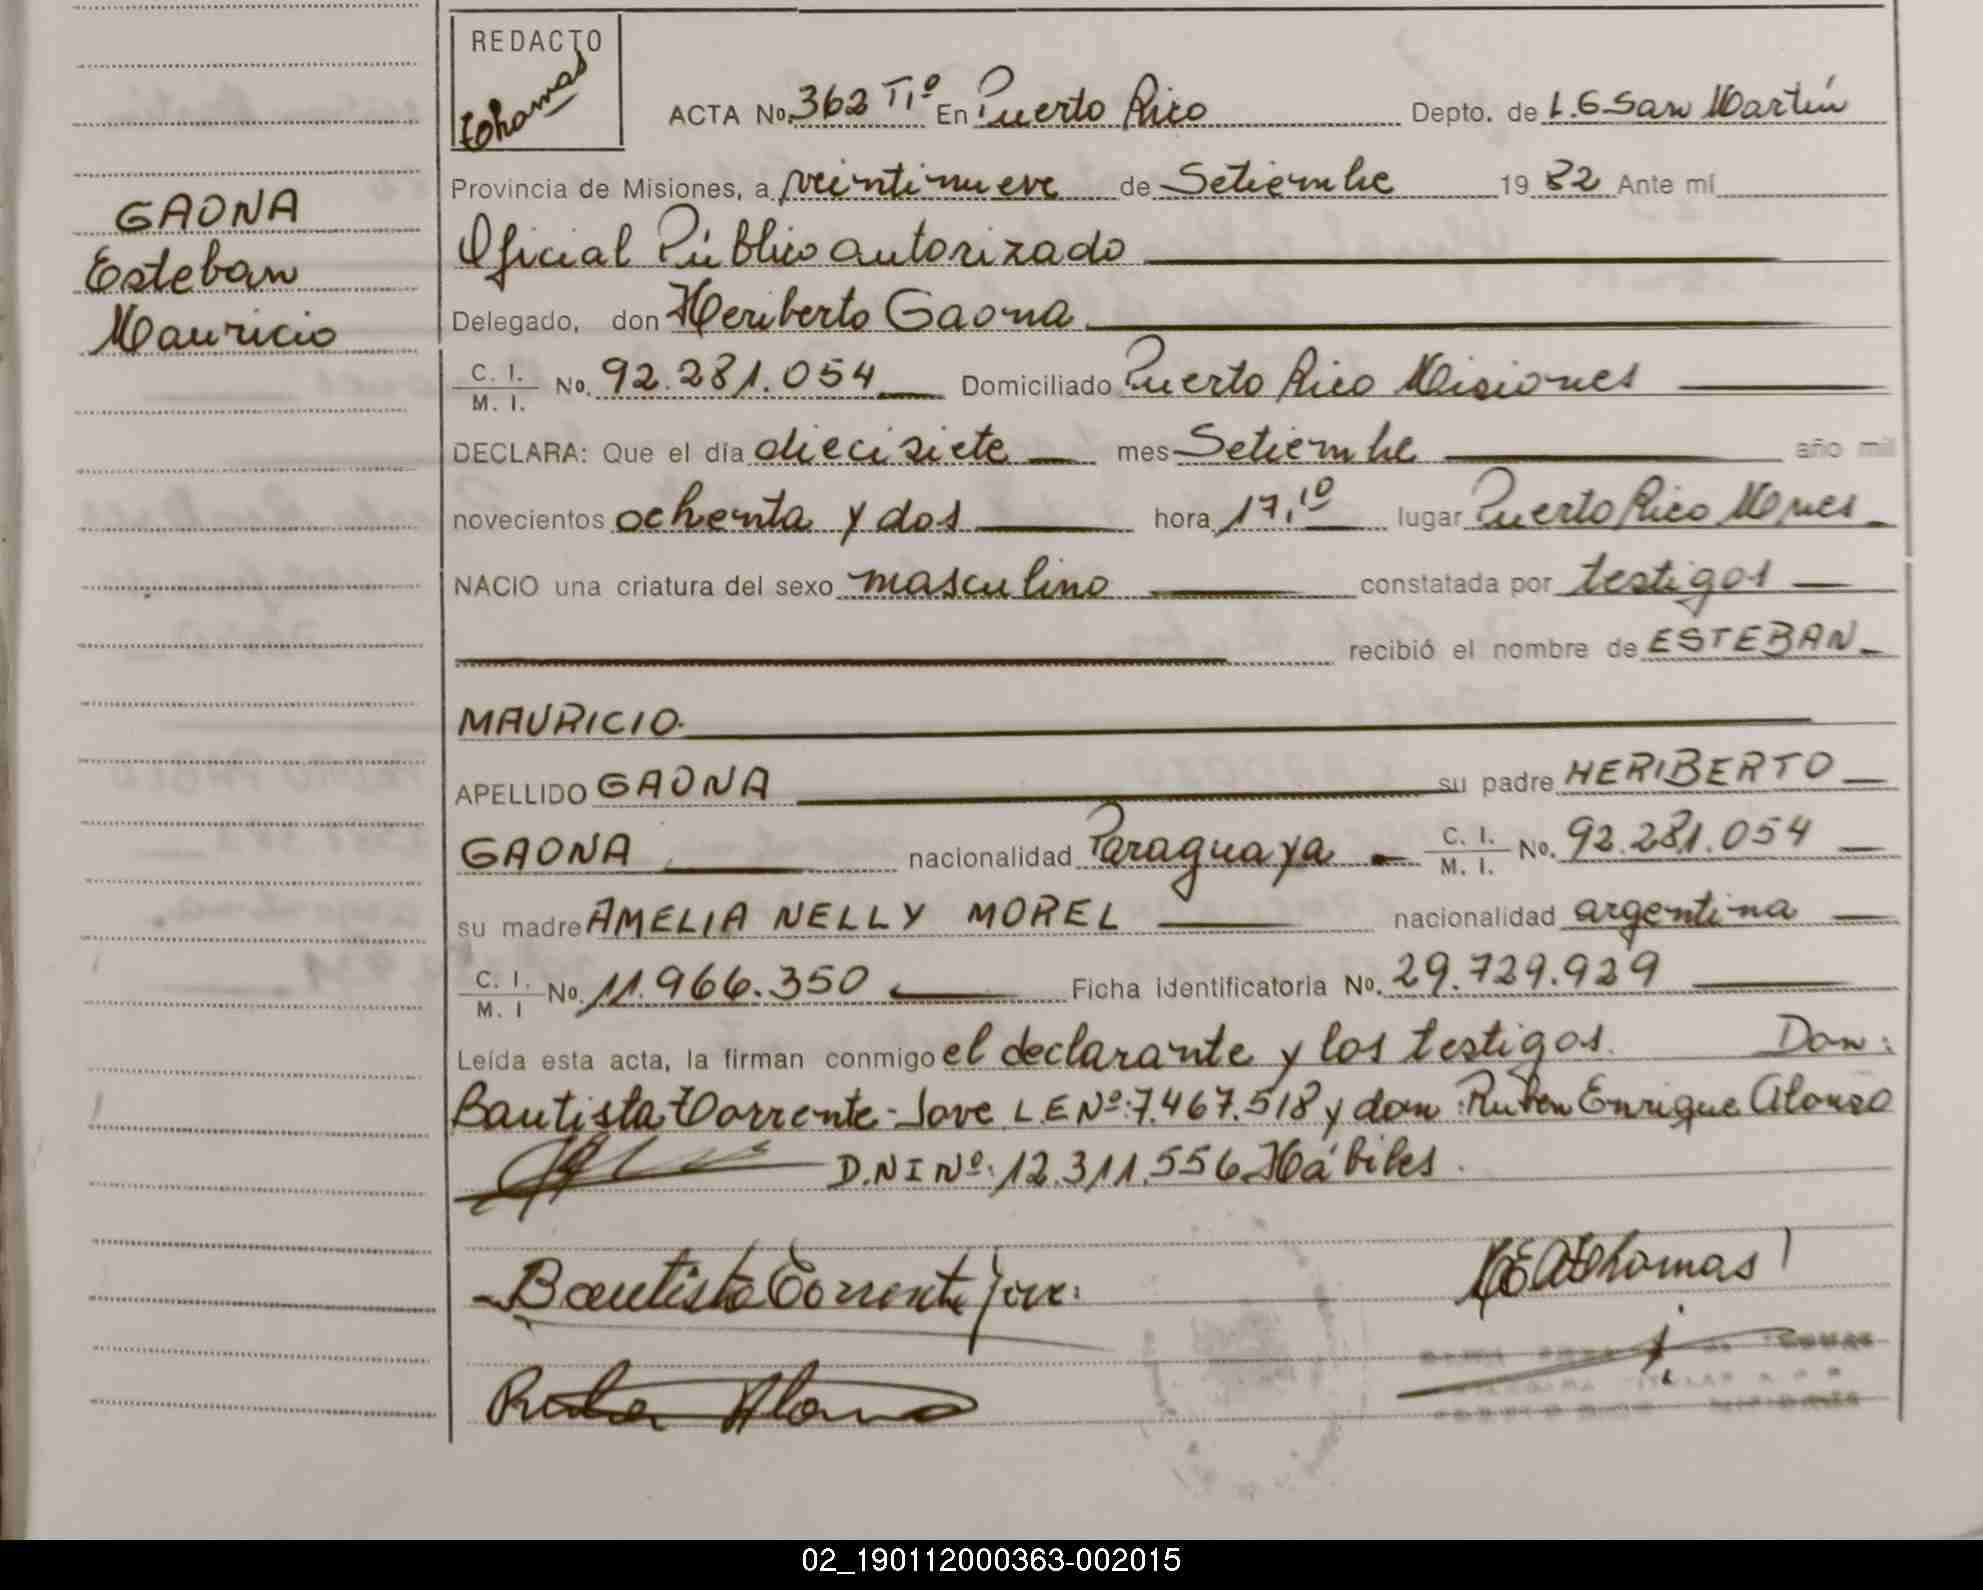 REDACTO
Thomas
ACTA No. 362 Tº En Puerto Rico Depto. de L.G San Martín
Provincia de Misiones, a veintinueve de Setiembre 19 82 Ante mí
GAONA
Esteban
Mauricio
Oficial Público autorizado
Delegado, don Heriberto Gaona
C. I. M. I. No. 92.281.054 Domiciliado Puerto Rico Misiones
DECLARA: Que el día diecisiete mes Setiembre año mil
novecientos ochenta y dos hora 17,10 lugar Puerto Rico Mnes
NACIO una criatura del sexo masculino constatada por testigos
recibió el nombre de ESTEBAN
MAURICIO
APELLIDO GAONA su padre HERIBERTO
GAONA nacionalidad Paraguaya C. I. M. I. No. 92.281.054
su madre AMELIA NELLY MOREL nacionalidad argentina
C. I. M. I No. 11.966.350 Ficha identificatoria No. 29.729.929
Leída esta acta, la firman conmigo el declarante y los testigos. Don:
Bautista Torrente-Jove L.E Nº:7.467.518 y don: Ruben Enrique Alonso
D.N I Nº: 12.311.556 Hábiles.
Bautista Torrente Jove
Thomas
Ruben Alonso
02_190112000363-002015